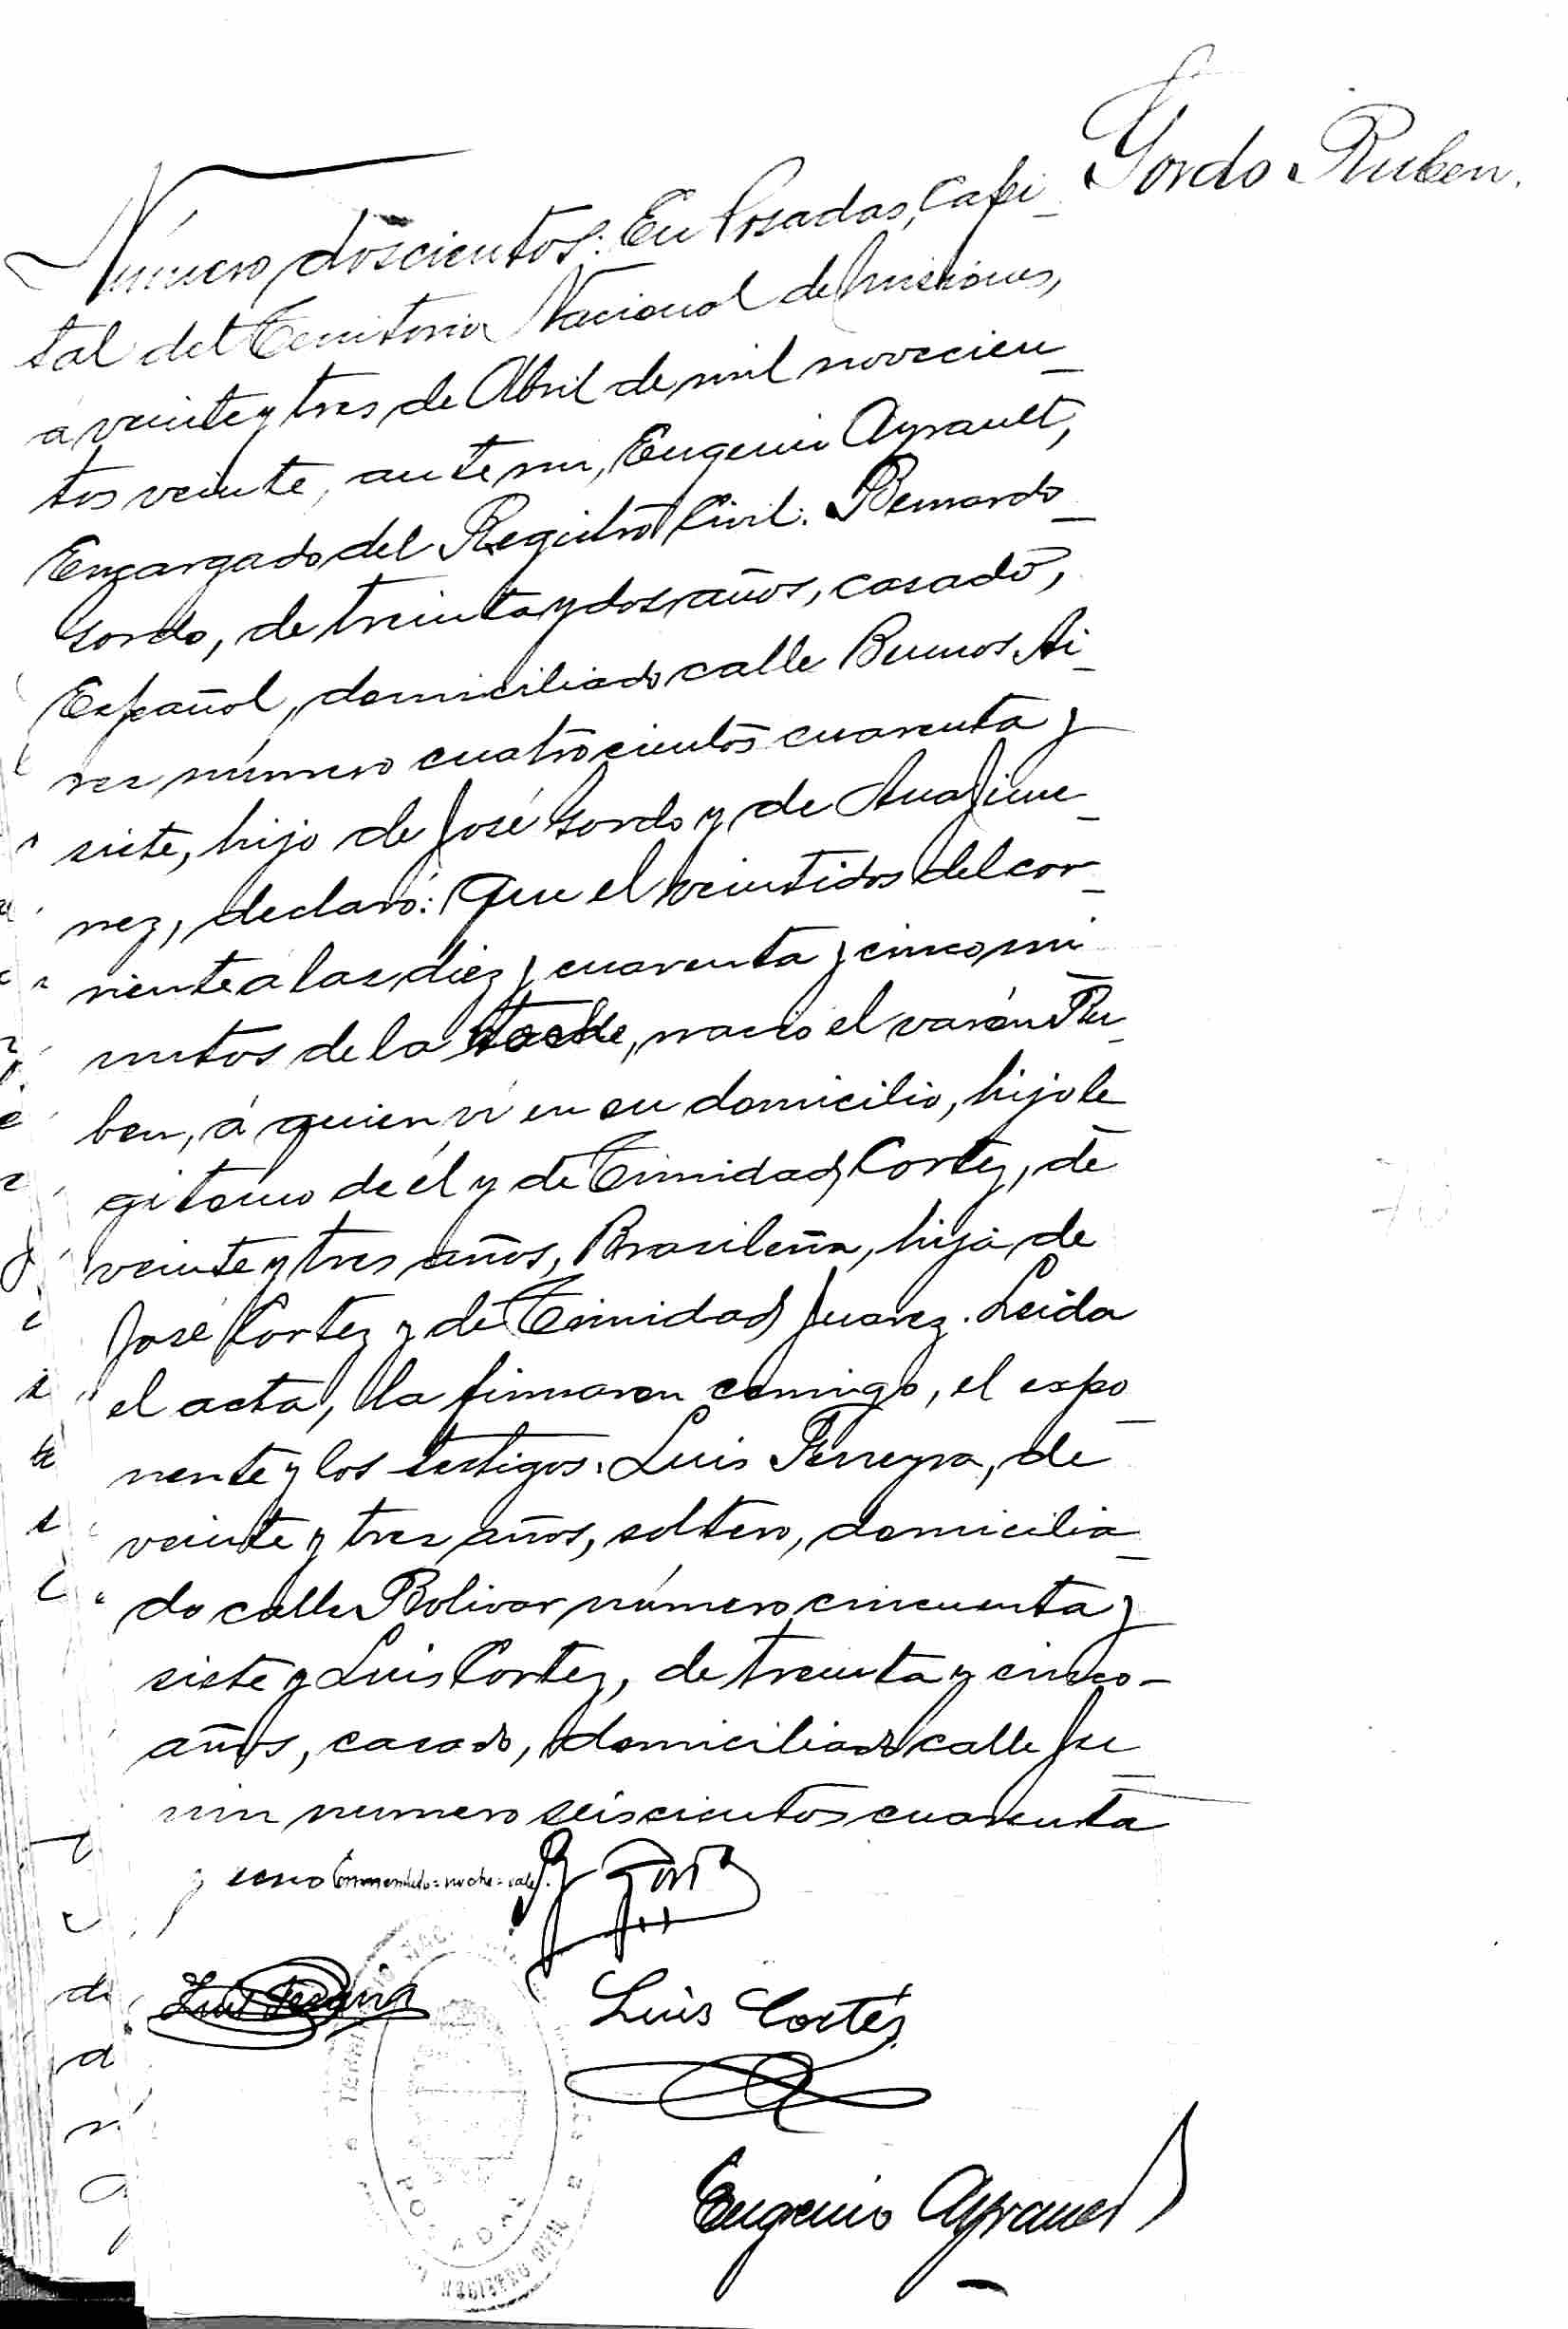 Gordo Ruben.
Número doscientos: En Posadas, Capi-
tal del Territorio Nacional de Misiones,
a veinte y tres de Abril de mil novecien-
tos veinte, ante mi, Eugenio Ayrault,
Encargado del Registro Civil. Bernardo
Gordo, de treinta y dos años, casado,
Español, domiciliado calle Buenos Ai-
res número cuatrocientos cuarenta y
siete, hijo de José Gordo y de Ana Jime-
nez, declaró: Que el veintidos del cor-
riente a las diez y cuarenta y cinco mi-
nutos de la noche, nacio el varón Ru-
ben, á quien ví en su domicilio, hijo le-
gitomo de él y de Trinidad Cortez, de
veinte y tres años, Brasileña, hija de
José Cortez y de Trinidad Juarez. Leida
el acta, la firmaron comigo, el expo-
nente y los testigos: Luis Ferreyra, de
veinte y tres años, soltero, domicilia-
do calle Bolivar número cincuenta y
siete y Luis Cortez, de treinta y cinco-
años, casado, domiciliado calle Ju-
nin numero seiscientos cuarenta
y uno Enmendado=noche=vale.
B Gordo
Luis Cortés
Eugenio Ayrault
POSADAS
REGISTRO CIVIL